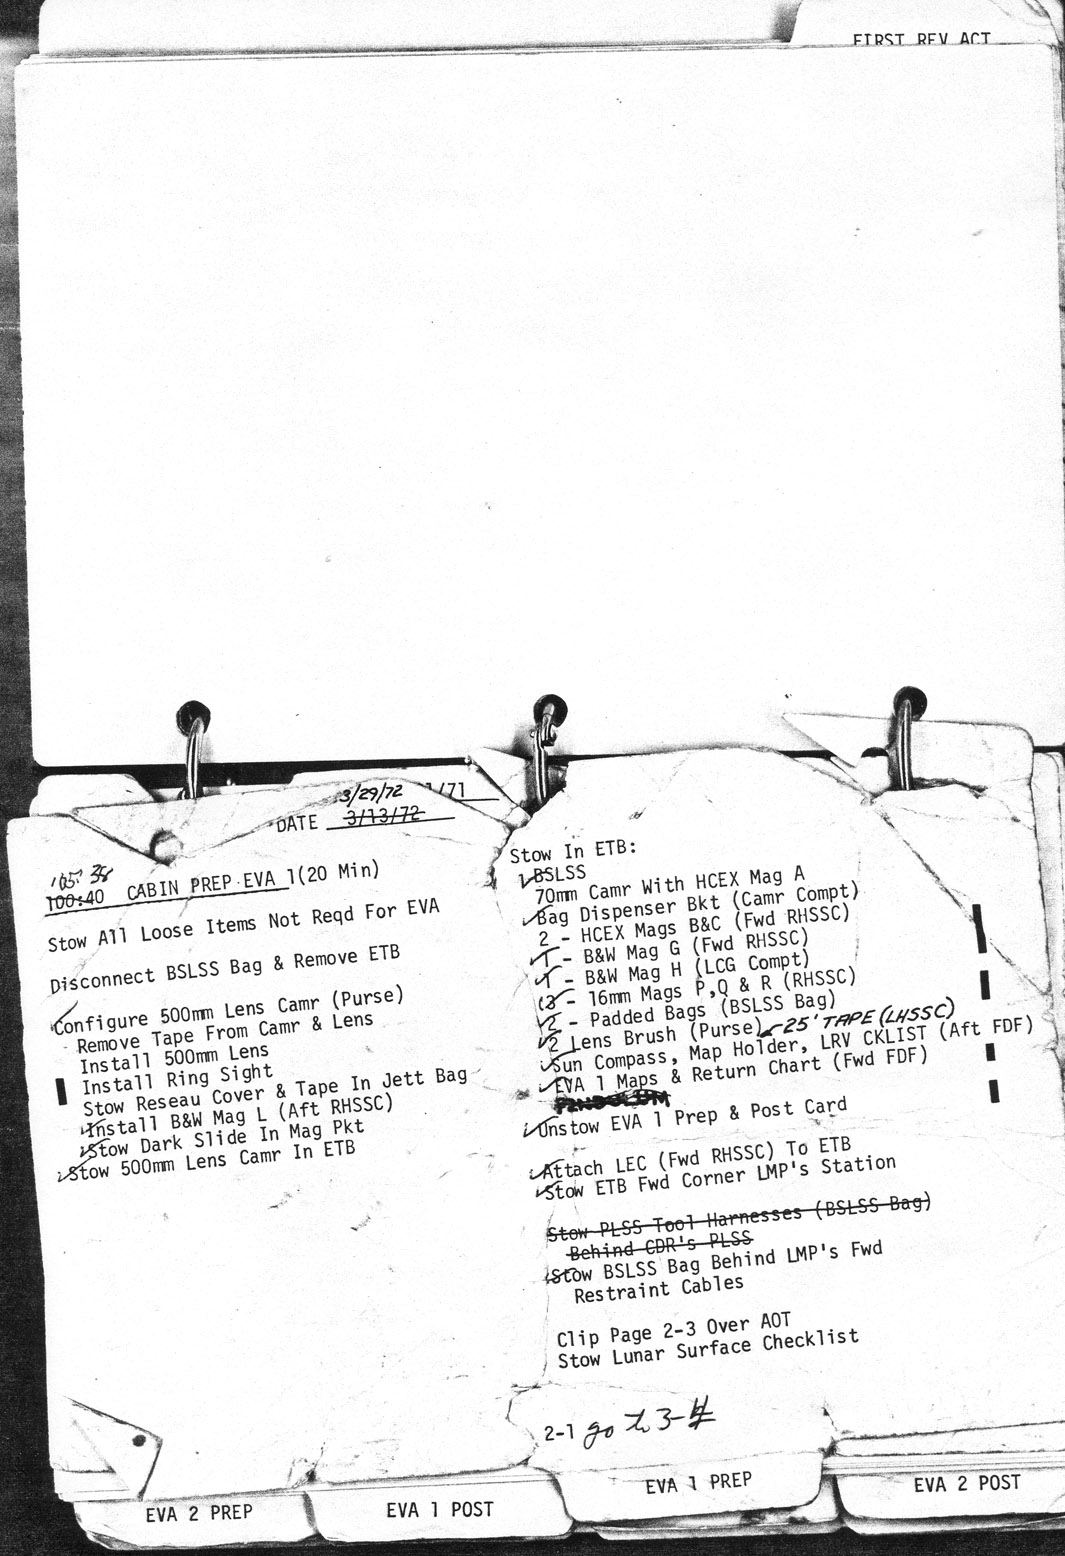 FIRST REV ACT
3/29/72 1/71
DATE 3/13/72
105:38
100:40 CABIN PREP EVA 1(20 Min)
Stow All Loose Items Not Reqd For EVA
Disconnect BSLSS Bag & Remove ETB
Configure 500mm Lens Camr (Purse)
Remove Tape From Camr & Lens
Install 500mm Lens
Install Ring Sight
Stow Reseau Cover & Tape In Jett Bag
Install B&W Mag L (Aft RHSSC)
Stow Dark Slide In Mag Pkt
Stow 500mm Lens Camr In ETB
Stow In ETB:
BSLSS
70mm Camr With HCEX Mag A
Bag Dispenser Bkt (Camr Compt)
2 - HCEX Mags B&C (Fwd RHSSC)
1 - B&W Mag G (Fwd RHSSC)
1 - B&W Mag H (LCG Compt)
3 - 16mm Mags P,Q & R (RHSSC)
2 - Padded Bags (BSLSS Bag)
2 Lens Brush (Purse) 25' TAPE (LHSSC)
Sun Compass, Map Holder, LRV CKLIST (Aft FDF)
EVA 1 Maps & Return Chart (Fwd FDF)
Unstow EVA 1 Prep & Post Card
Attach LEC (Fwd RHSSC) To ETB
Stow ETB Fwd Corner LMP's Station
Stow PLSS Tool Harnesses (BSLSS Bag)
Behind CDR's PLSS
Stow BSLSS Bag Behind LMP's Fwd
Restraint Cables
Clip Page 2-3 Over AOT
Stow Lunar Surface Checklist
2-1 go to 3-4
EVA 2 PREP
EVA 1 POST
EVA 1 PREP
EVA 2 POST